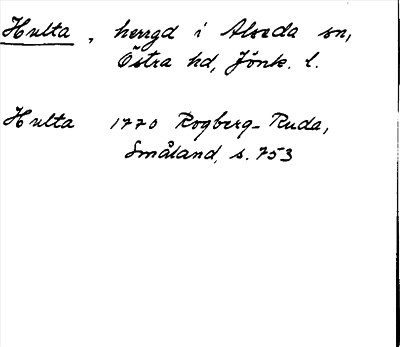 Hulta, herrgd i Alseda sn,
Östra hd, Jönk. l.
Hulta 1770 Rogberg-Ruda,
Småland, s. 753